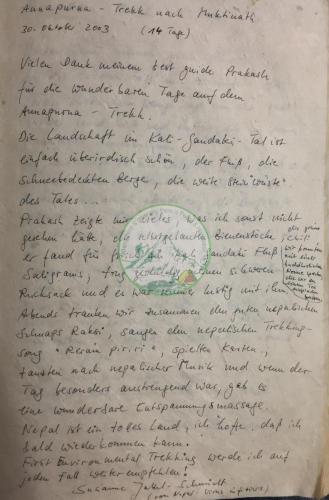 Annapurna - Trekk nach Muktinath
30. Oktober 2003 (14 Tage)
Vielen Dank meinem best guide Prakash
für die wunderbaren Tage auf dem
Annapurna - Trekk.
Die Landschaft im Kali-Gandaki-Tal ist
einfach überirdisch schön, der Fluß, die
Schneebedeckten Berge, die weite Steinwüste
des Tales...
Prakash zeigte mir vieles, was ich sonst nicht
gesehen hätte, die Bienenstöcke,
er fand für mich im Kali Gandaki Fluß
Saligrams, trug geduldig meinen schweren
Rucksack und es war immer lustig mit ihm.
Abends tranken wir zusammen den guten nepalischen
Schnaps Raksi, sangen den nepalischen Trekking-
song "Resam piriri", spielten Karten,
tanzten nach nepalischer Musik und wenn der
Tag besonders anstrengend war, gab es
eine wunderbare Entspannungsmassage.
Nepal ist ein tolles Land, ich hoffe, daß ich
bald wiederkommen kann.
First Environmental Trekking werde ich auf
jeden Fall weiterempfehlen!
Susanne Schmidt